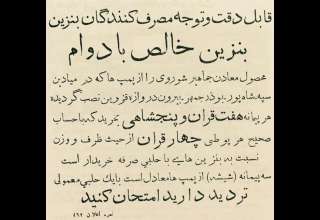 قابل دقت و توجه مصرف کنندگان بنزین
بنزین خالص با دوام
محصول معادن جماهیر شوروی را از پمپ ها که در میادین
سپه شاه پور . بوذرجمهر . بیرون دروازه قزوین نصب گردیده
هر پیمانه هفت قران و پنجشاهی بخرید که با حساب
صحیح هر پوطی چهار قران از حیث ظرف و وزن
نسبت به بنزین هایی با حلبی صرفه خریدار است
سه پیمانه (شیشه) از پمپ ها معادل است با یک حلبی معمولی
تردید دارید امتحان کنید
نمره اعلان ۴۹۲